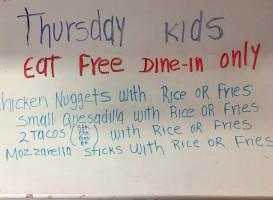 Thursday Kids
Eat Free Dine-in only
chicken Nuggets with Rice OR Fries
small Quesadilla with Rice OR Fries
2 Tacos ( ) with Rice OR Fries
Mozzarella sticks with Rice OR Fries